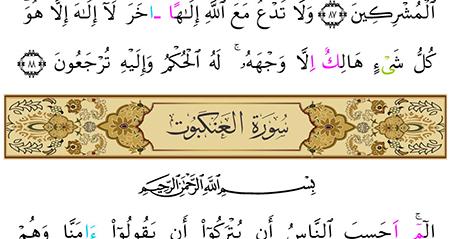 ٱلۡمُشۡرِكِينَ ٨٧ وَلَا تَدۡعُ مَعَ ٱللَّهِ إِلَٰهًا ـاخَرَ لَآ إِلَٰهَ إِلَّا هُوَۚ
كُلُّ شَيۡءٍ هَالِكٌ اِلَّا وَجۡهَهُۥۚ لَهُ ٱلۡحُكۡمُ وَإِلَيۡهِ تُرۡجَعُونَ ٨٨
سُورَةُ العَنكَبُوت
بِسۡمِ ٱللَّهِ ٱلرَّحۡمَٰنِ ٱلرَّحِيمِ
الٓمِّۚ اَحَسِبَ ٱلنَّاسُ أَن يُتۡرَكُوٓاْ أَن يَقُولُوٓاْ ءَامَنَّا وَهُمۡ